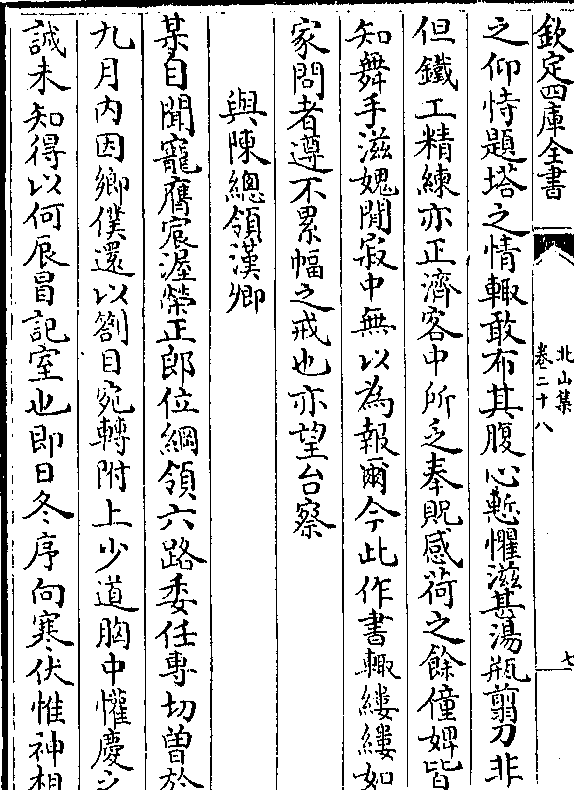 欽定四庫全書
北山集
卷二十八
七
之仰恃題塔之情輙敢布其腹心慙懼滋甚湯瓶翦刀非
但鐵工精練亦正濟客中所乏奉貺感荷之餘僮婢皆
知舞手滋媿閒寂中無以為報爾今此作書輙縷縷如
家問者遵不累幅之戒也亦望台察
與陳總領漢卿
某自聞寵膺宸渥榮正郎位綱領六路委任専切曽於
九月内因鄉僕還以劄目宛轉附上少道胸中懽慶之
誠未知得以何辰冒記室也即日冬序向寒伏惟神相